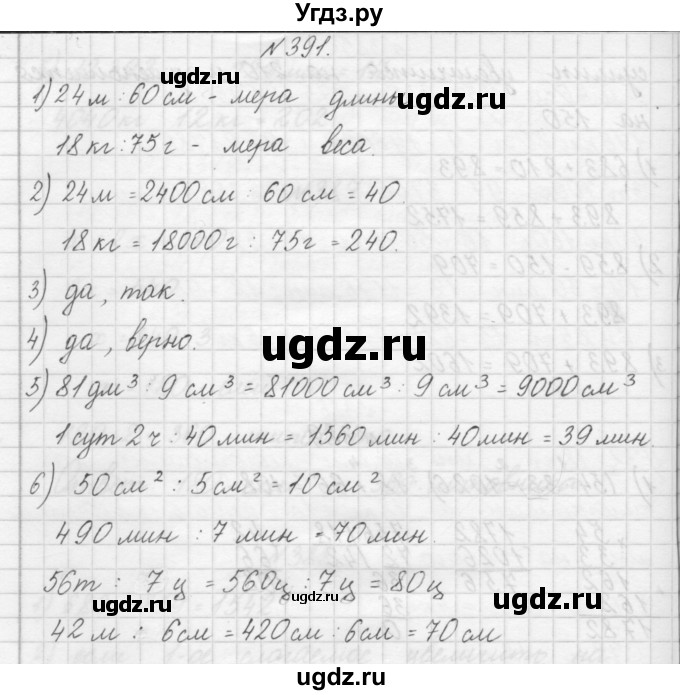 Угдз.ру
N 391.
1) 24 м : 60 см - мера длины
18 кг : 75 г - мера веса.
2) 24 м = 2400 см : 60 см = 40.
18 кг = 18000 г : 75 г = 240.
3) да, так.
4) да, верно.
5) 81 дм³ : 9 см³ = 81000 см³ : 9 см³ = 9000 см³
1 сут 2 ч : 40 мин = 1560 мин : 40 мин = 39 мин.
6) 50 см² : 5 см² = 10 см²
490 мин : 7 мин = 70 мин.
56 т : 7 ц = 560 ц : 7 ц = 80 ц
42 м : 6 см = 420 см : 6 см = 70 см
ugdz.ru
ugdz.ru
ugdz.ru
ugdz.ru
ugdz.ru
ugdz.ru
ugdz.ru
ugdz.ru
ugdz.ru